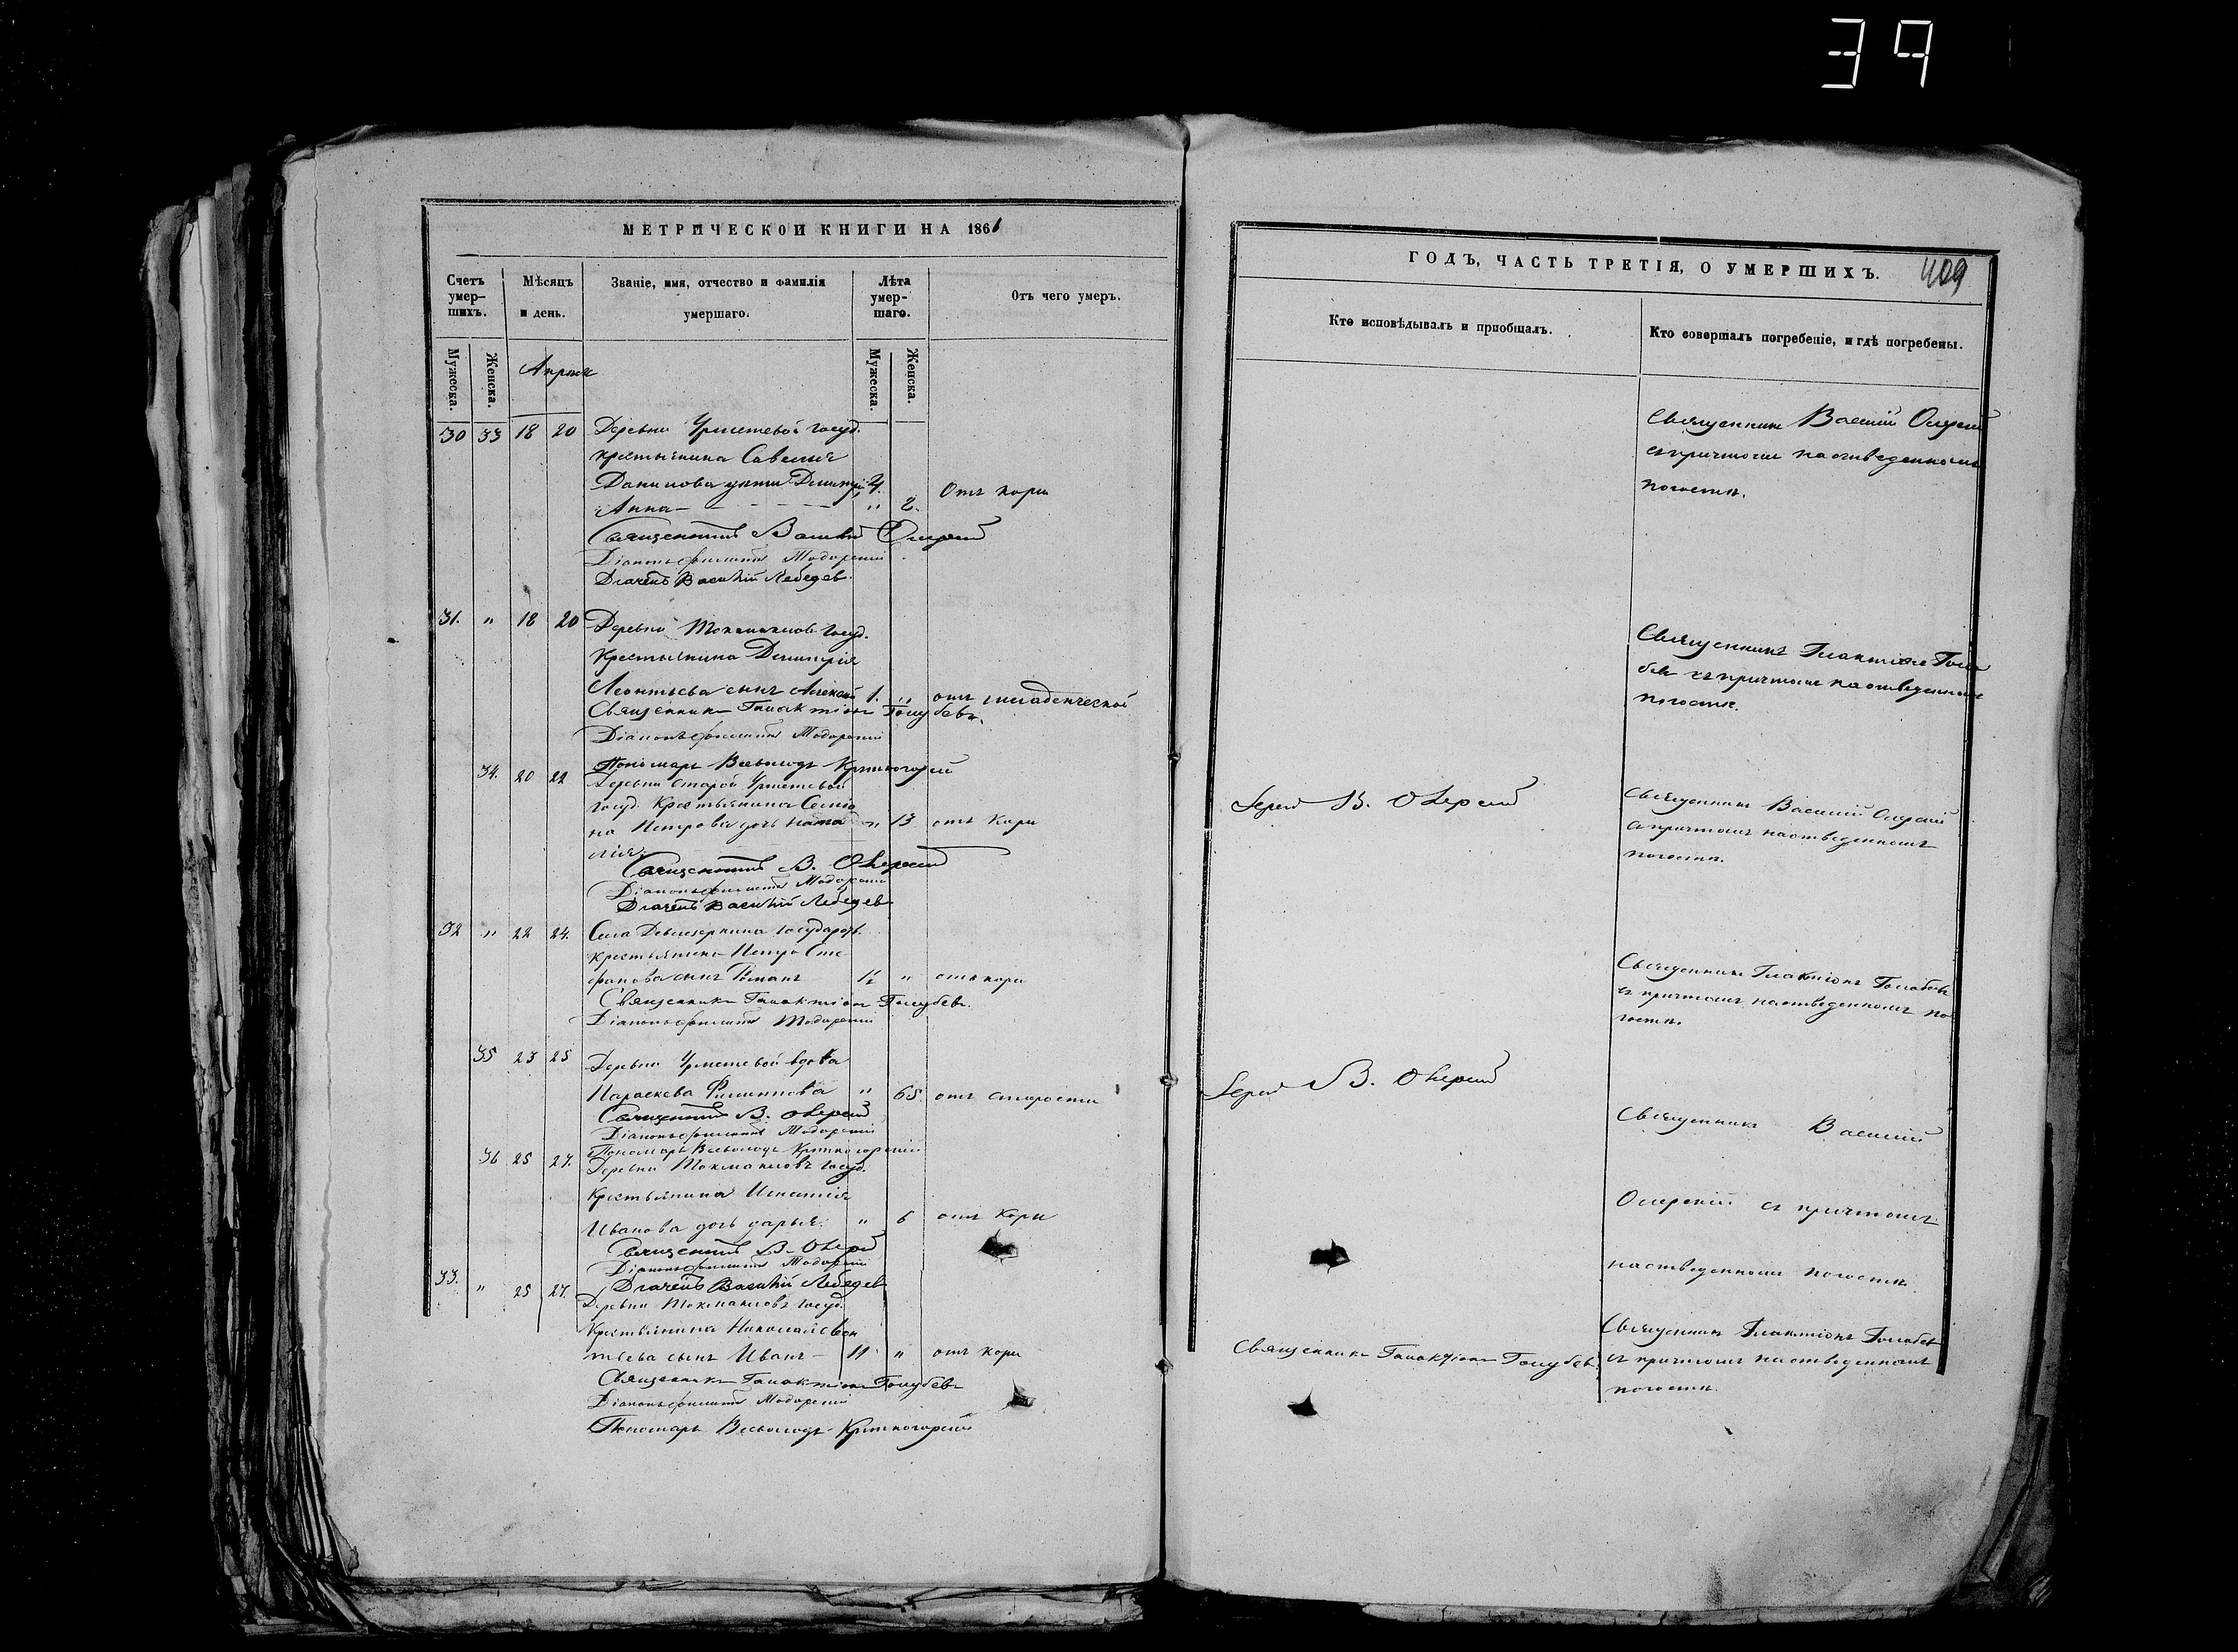 39
МЕТРИЧЕСКОЙ КНИГИ НА 1861
Счетъ умер-шихъ.
Мѣсяцъ и день.
Званіе, имя, отчество и фамилія умершаго.
Лѣта умер-шаго.
Отъ чего умеръ.
Мужеска.
Женска.
Мужеска.
Женска.
Апрель
30 33 18 20 Деревни госуд.
крестьянина Савелья
Данилова дѣти Димитрій 4.
Анна - - - " 2. Отъ кори
Священникъ Василій Озерскій
Діаконъ
Дьячекъ Василій Лебедев.
31. " 18 20 Деревни госуд.
Крестьянина Димитрія
Леонтьева сынъ Алексѣй 1. " отъ младенческой
Священникъ Галактіонъ Голубевъ.
Діаконъ
Пономарь Всеволодъ
34. 20 22 Деревни Старой
госуд. Крестьянина Семіо
на Петрова дочь Ната " 13 отъ кори
лія
Священникъ В. Озерскій
Діаконъ
Дьячекъ Василій Лебедев
32 " 22 24. Села государств.
крестьянина Петра Сте
фанова сынъ Романъ 1½ " отъ кори
Священникъ Галактіонъ Голубевъ.
Діаконъ
35 23 25 Деревни вдова
Параскева Филиппова " 65 отъ старости
Священникъ В. Озерскій
Діаконъ
Пономарь Всеволодъ
36 25 27. Деревни госуд.
Крестьянина Игнатія
Иванова дочь Дарья. " 6 отъ кори
Священникъ В. Озерскій
Діаконъ
Дьячекъ Василій Лебедев
33. " 25 27. Деревни госуд.
Крестьянина Николая Леон
тьева сынъ Иванъ - 11 " отъ кори
Священникъ Галактіонъ Голубевъ
Діаконъ
Пономарь Всеволодъ
ГОДЪ, ЧАСТЬ ТРЕТІЯ, О УМЕРШИХЪ.
409
Кто исповѣдывалъ и пріобщалъ.
Кто совершалъ погребеніе, и гдѣ погребены.
Священникъ Василій Озерскій
съ причтомъ на отведенномъ
погостѣ.
Священникъ Галактіонъ Голу
бевъ съ причтомъ на отведенномъ
погостѣ.
Іерей В. Озерскій
Священникъ Василій Озерскій
съ причтомъ на отведенномъ
погостѣ.
Священникъ Галактіонъ Голубевъ
съ причтомъ на отведенномъ по
гостѣ.
Іерей В. Озерскій
Священникъ Василій
Озерскій съ причтомъ
на отведенномъ погостѣ.
Священникъ Галактіонъ Голубевъ
Священникъ Галактіонъ Голубевъ
съ причтомъ на отведенномъ
погостѣ.